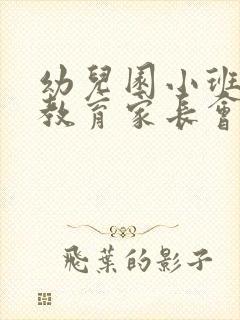 幼兒園小班
教育家長會
飛葉的影子